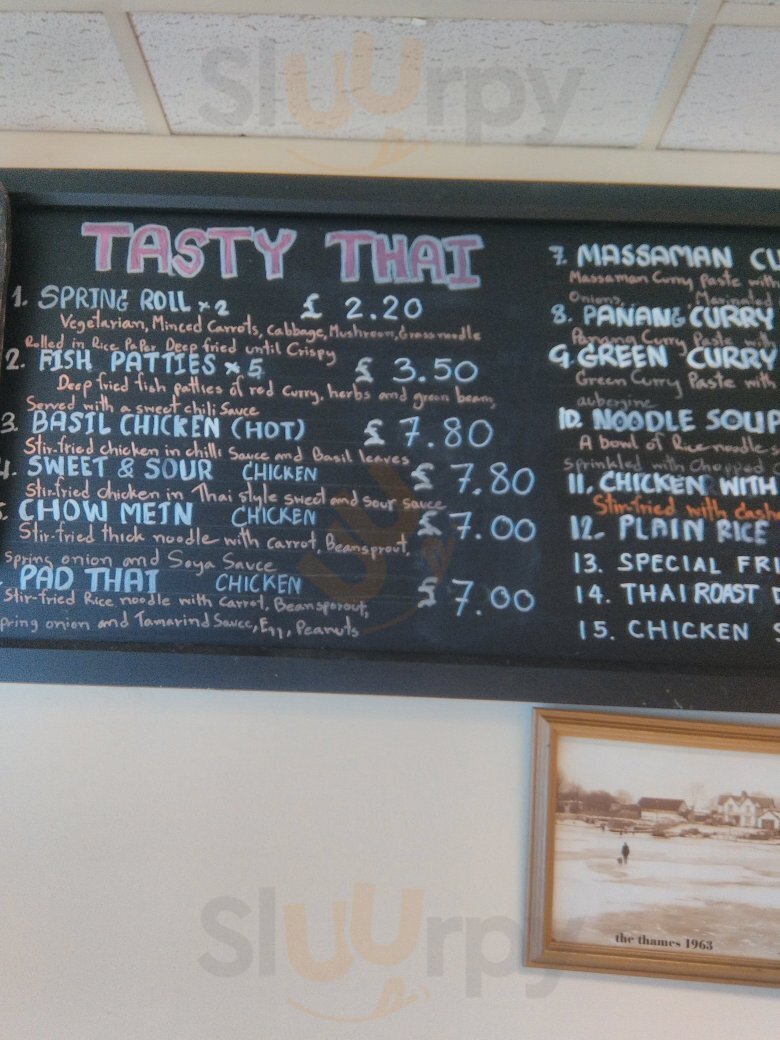 Slurpy
TASTY THAI
1. SPRING ROLL x 2 £ 2.20
Vegetarian, Minced Carrots, Cabbage, Mushroom, Grassnoodle
Rolled in Rice Paper Deep fried until Crispy
2. FISH PATTIES x 5 £ 3.50
Deep fried fish patties of red curry, herbs and green bean,
Served with a sweet chili Sauce
3. BASIL CHICKEN (HOT) £ 7.80
Stir-fried chicken in chilli Sauce and Basil leaves
4. SWEET & SOUR CHICKEN £ 7.80
Stir-fried chicken in Thai style sweet and sour sauce
CHOW MEIN CHICKEN £ 7.00
Stir-fried thick noodle with carrot, Beansprout,
Spring onion and Soya Sauce
PAD THAI CHICKEN £ 7.00
Stir-fried Rice noodle with Carrot, Beansprout,
pring onion and Tamarind Sauce, Egg, Peanuts
7. MASSAMAN CU
Massaman Curry Paste with
Onions, Marinated
8. PANANG CURRY
Panang Curry Paste with
9. GREEN CURRY
Green Curry Paste with
aubergine
10. NOODLE SOUP
A bowl of Rice noodle s
Sprinkled with Chopped
11. CHICKEN WITH
Stir-fried with Cash
12. PLAIN RICE
13. SPECIAL FRI
14. THAI ROAST D
15. CHICKEN S
the thames 1963
Slurpy